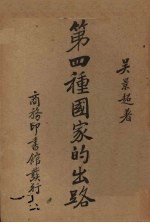 吳景超著
第四種國家的出路
商務印書館發行